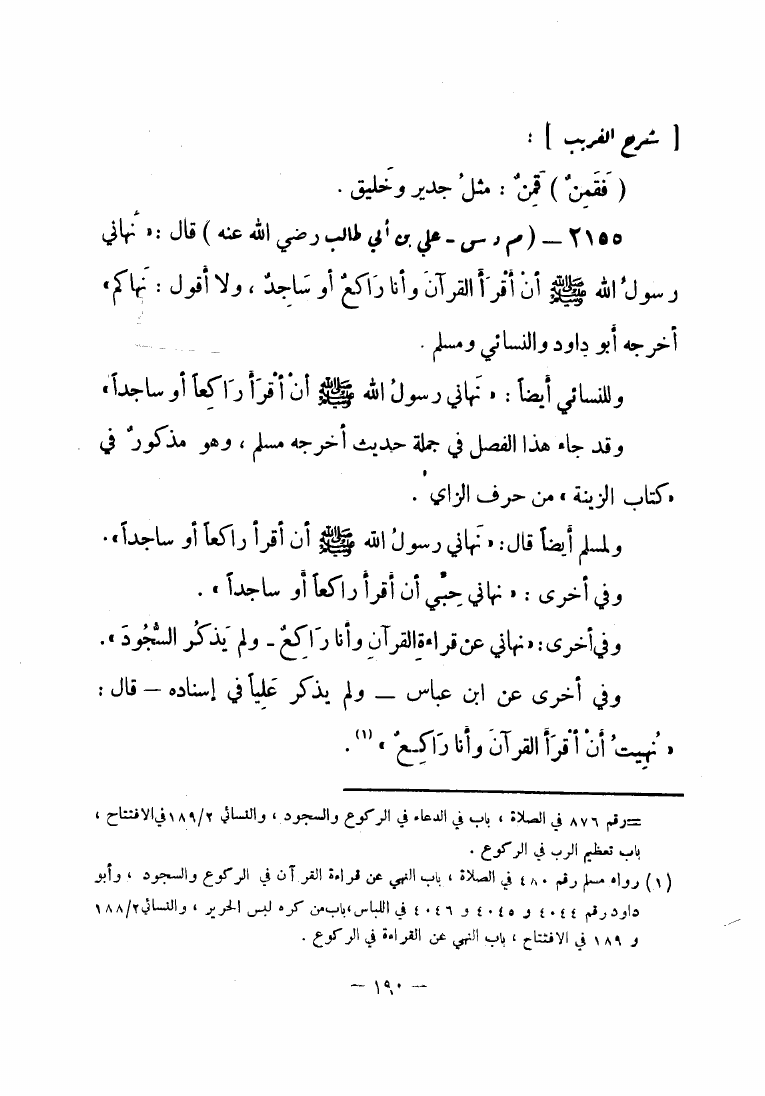 [ شرح الغريب ] :
( فَقَمِنٌ ) قَمِنٌ : مثلُ جدير وخَليق .
٢١٥٥ — ( م د س - علي بن أبي طالب رضي الله عنه ) قال : « نَهاني
رسولُ الله ﷺ أنْ أقْرَأَ القرآنَ وأنا رَاكِعٌ أو سَاجِدٌ ، ولا أقول : نَهاكم »
أخرجه أبو داود والنسائي ومسلم .
وللنسائي أيضاً : « نَهاني رسولُ الله ﷺ أنْ أقرَأَ رَاكِعاً أو ساجداً »
وقد جاء هذا الفصل في جملة حديث أخرجه مسلم ، وهو مذكورٌ في
« كتاب الزينة » من حرف الزاي .
ولمسلم أيضاً قال : « نَهاني رسولُ الله ﷺ أن أقرأ راكعاً أو ساجداً » .
وفي أخرى : « نهاني حِبِّي أن أقرأ راكعاً أو ساجداً » .
وفي أخرى : « نهاني عن قراءةِ القرآنِ وأنا رَاكِعٌ - ولم يَذكُر السُّجُودَ » .
وفي أخرى عن ابن عباس — ولم يذكر عَلِياً في إسناده — قال :
« نُهِيتُ أنْ أقْرَأَ القرآنَ وأنا رَاكِعٌ » (١) .
= رقم ٨٧٦ في الصلاة ، باب في الدعاء في الركوع والسجود ، والنسائي ١٨٩/٢ في الافتتاح ،
باب تعظيم الرب في الركوع .
(١) رواه مسلم رقم ٤٨٠ في الصلاة ، باب النهي عن قراءة القرآن في الركوع والسجود ، وأبو
داود رقم ٤٠٤٤ و ٤٠٤٥ و ٤٠٤٦ في اللباس ، باب من كره لبس الحرير ، والنسائي ١٨٨/٢
و ١٨٩ في الافتتاح ، باب النهي عن القراءة في الركوع .
— ١٩٠ —